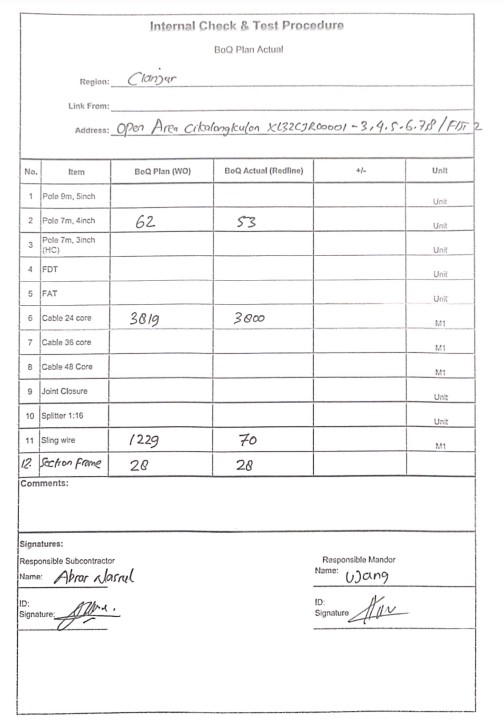 Internal Check & Test Procedure
BoQ Plan Actual
Region: Cianjur
Link From:
Address: Open Area Cikalongkulon XL32CJR00001 - 3,4.5.6.7,8 / FDT 2
No. Item BoQ Plan (WO) BoQ Actual (Redline) +/- Unit
1 Pole 9m, 5inch Unit
2 Pole 7m, 4inch 62 53 Unit
3 Pole 7m, 3inch (HC) Unit
4 FDT Unit
5 FAT Unit
6 Cable 24 core 3819 3800 M1
7 Cable 36 core M1
8 Cable 48 Core M1
9 Joint Closure Unit
10 Splitter 1:16 Unit
11 Sling wire 1229 70 M1
12. Section Frame 28 28
Comments:
Signatures:
Responsible Subcontractor
Responsible Mandor
Name: Abrar Nasrul
Name: Ujang
ID:
ID:
Signature:
Signature